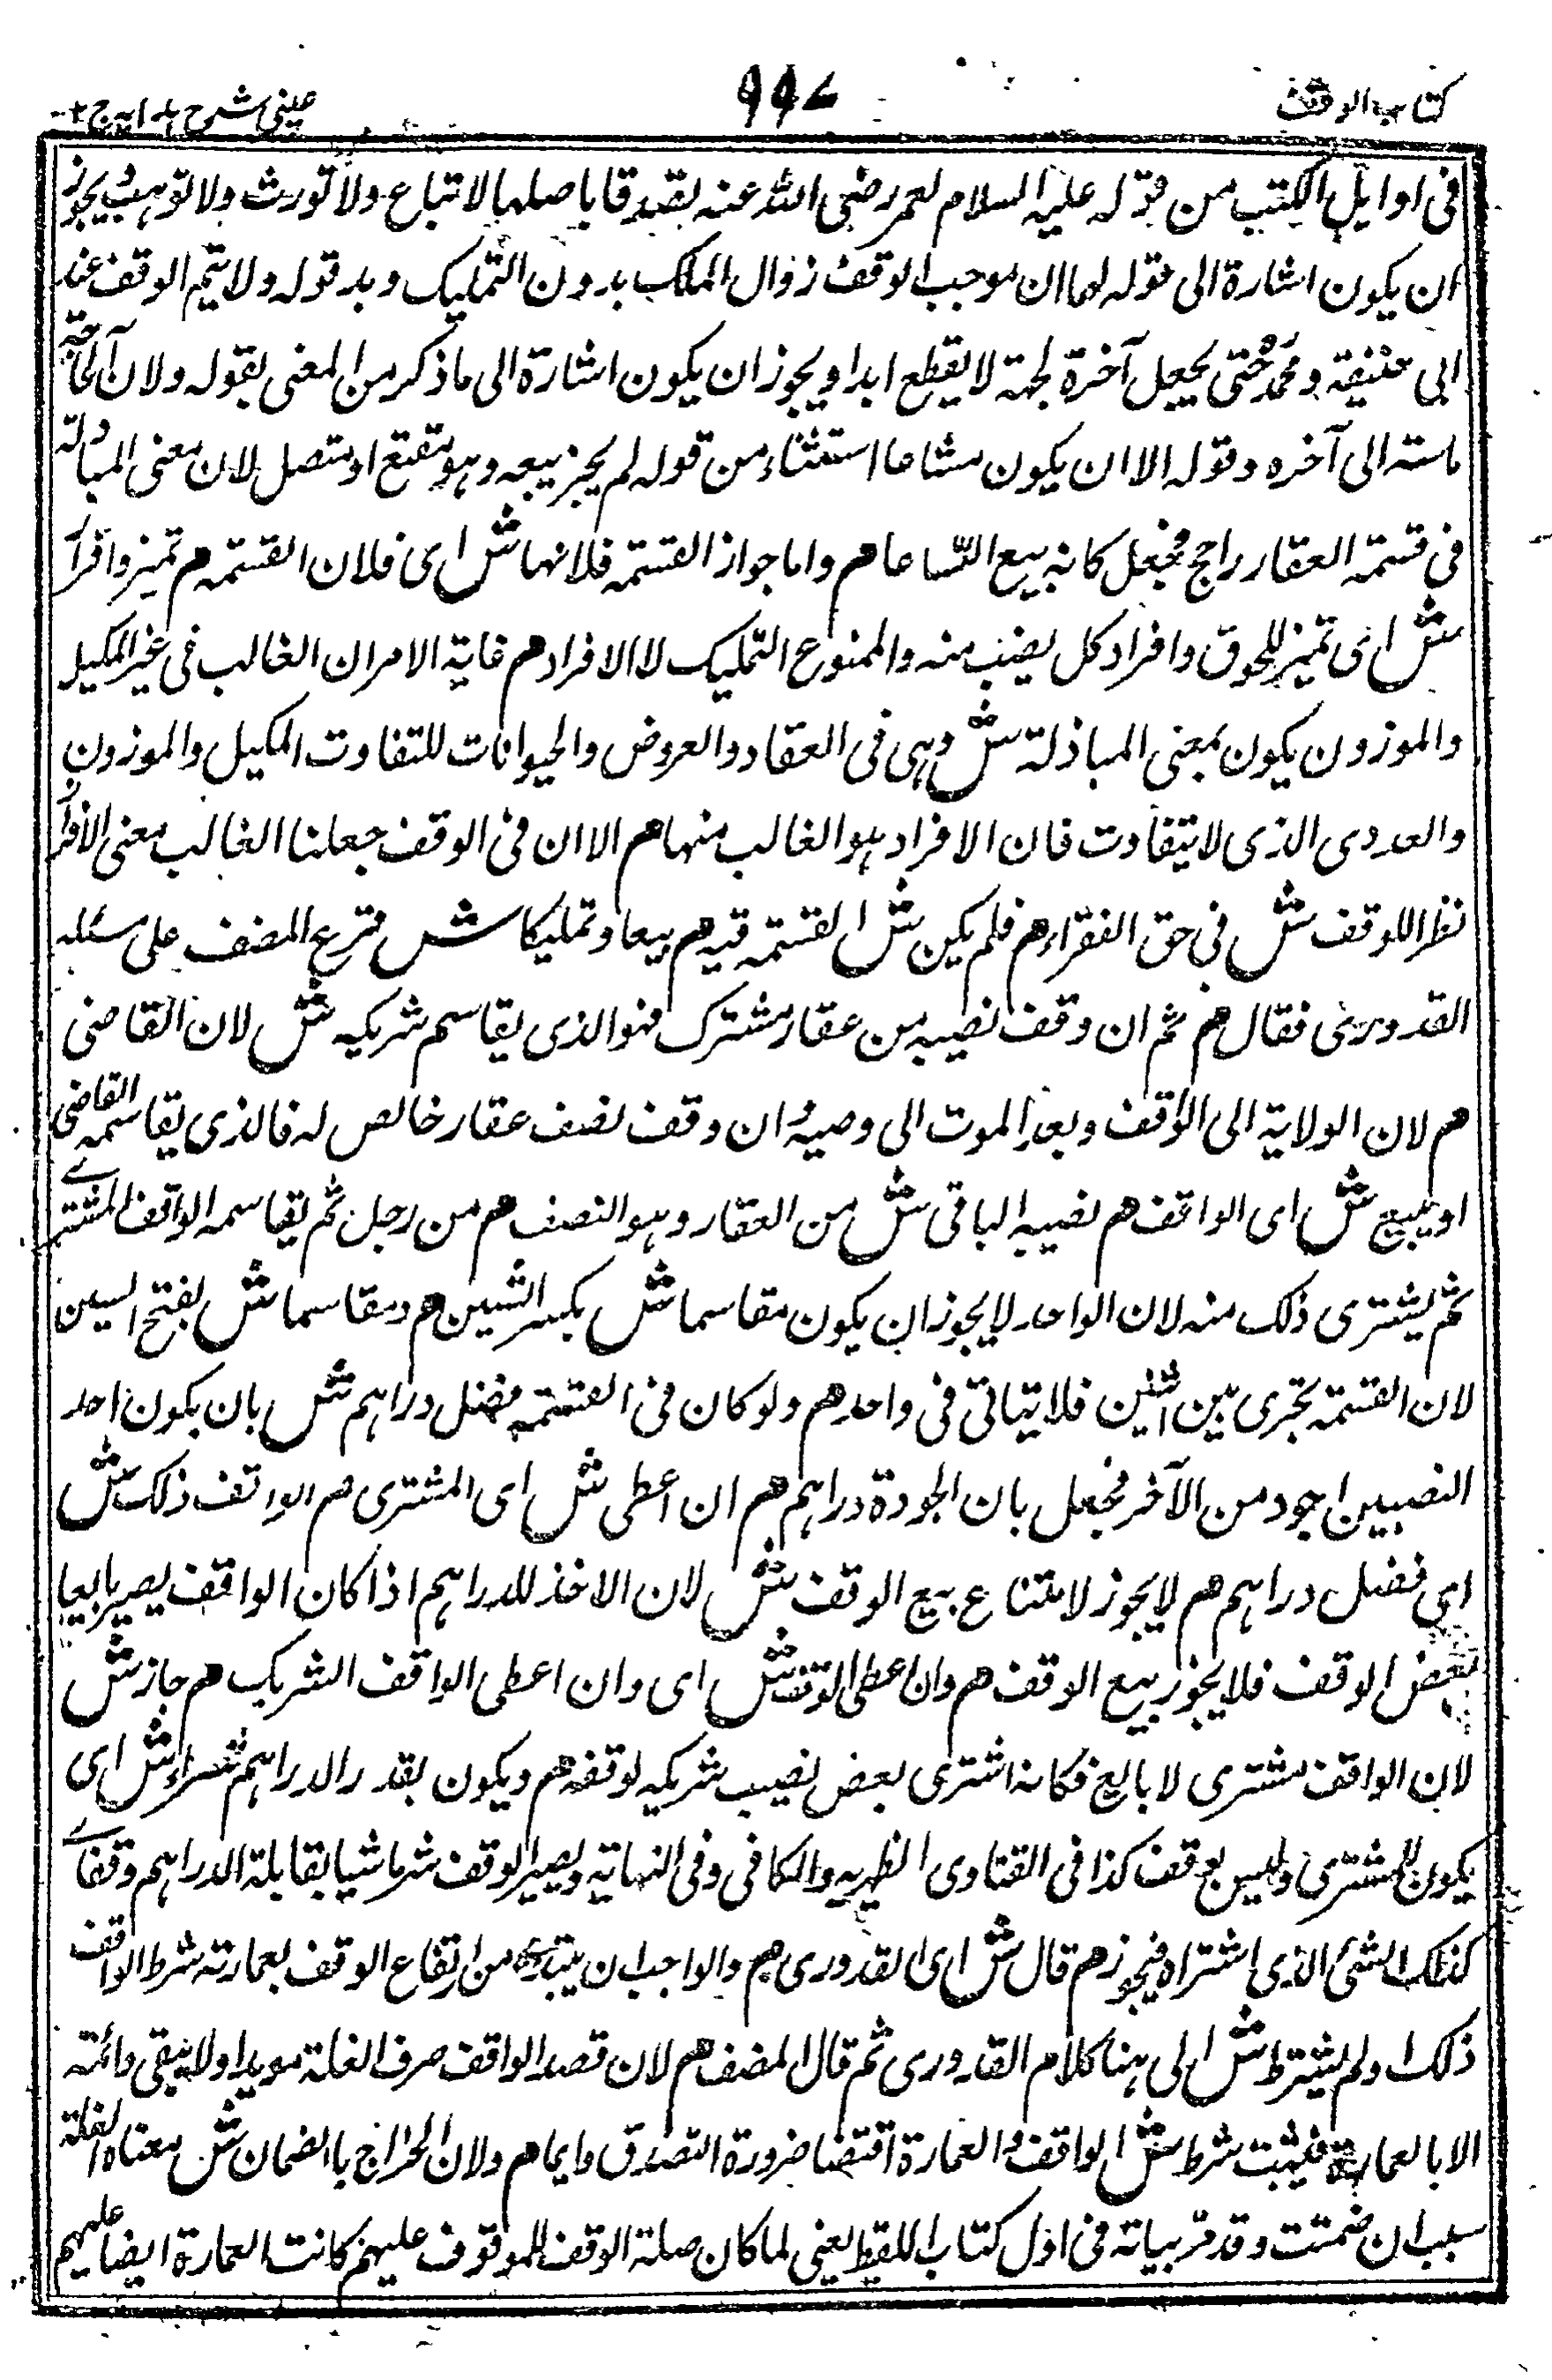 كتاب الوقف
٩٩٧
عينى شرح هدايه ج ٢
فى اوايل الكتب من قوله عليه السلام لعمر رضى الله عنه تصدقا باصلها لاتباع ولا تورث ولا توهب ويجوز
ان يكون اشارة الى قوله لهما ان موجب الوقف زوال الملك بدون التمليك وبد قوله ولا يتم الوقف عند
ابى حنيفة ومحمد حتى يجعل آخرة لجهة لا يقطع ابدا ويجوز ان يكون اشارة الى ما ذكر من المعنى بقوله ولان الحاجة
ماسته الى آخره وقوله الا ان يكون مشاعا استثناء من قوله لم يجز بيعه وهو متصل لان معنى المبادلة
فى قسمة العقار راجح فجعل كانه بيع الشاعا هم واما جواز القسمة فلانها ش اى فلان القسمة هم تميز وافراز
ش اى تميز للحوق وافراد كل نصيب منه والممنوع التمليك لا الافراد هم غاية الامر ان الغالب فى غير المكيل
والموزون يكون بمعنى المباذلة ش وهى فى العقاد والعروض والحيوانات للتفاوت المكيل والموزون
والعددى الذى لا يتفاوت فان الافراد هو الغالب منها هم الا ان فى الوقف جعلنا الغالب معنى الافراز
نظرا للوقف ش فى حق الفقراء هم فلم يكن ش القسمة فيه هم بيعا وتمليكا ش فترع المضف على مسئله
القدورى فقال هم ثم ان وقف نصيبه من عقار مشترك فهو الذى يقاسم شريكه ش لان القاضى
هم لان الولاية الى الواقف وبعد الموت الى وصيه وان وقف نصف عقار خالص له فالذى يقاسمه القاضى
او يبيع ش اى الواقف هم نصيبه الباقى ش من العقار وهو النصف هم من رجل ثم يقاسمه الواقف المشترى
ثم يشترى ذلك منه لان الواحد لا يجوز ان يكون مقاسما ش بكسر الشين هم ومقاسما ش بفتح السين
لان القسمة تجرى بين اثنين فلا يتاتى فى واحد هم ولو كان فى القسمة فضل دراهم ش بان يكون احد
النصبين اجود من الآخر فجعل بان الجودة دراهم هم ان اعطى ش اى المشترى هم الواقف ذلك ش
اى فضل دراهم هم لا يجوز لامتناع بيع الوقف ش لان الاخذ للدراهم اذا كان الواقف يصير بايعا
بعض الوقف فلا يجوز بيع الوقف هم وان اعطى الواقف ش اى وان اعطى الواقف الشريك هم جاز ش
لان الواقف مشترى لا بايع فكانه اشترى بعض نصيب شريكه لوقفه هم ويكون بقدر الدراهم شراء ش اى
يكون للمشترى وليس بوقف كذا فى الفتاوى الظهيريه والكافى وفى النهاية ويصير الوقف شرما شيا بقابلة الدراهم وقفا
كذلك الشئ الذى اشتراه فيجوز هم قال ش اى القدورى هم والواجب ان يبتدى من ارتفاع الوقف بعمارته شرط الواقف
ذلك او لم يشترط ش الى هنا كلام القدورى ثم قال المضف هم لان قصد الواقف صرف الغلة مويدا ولا يبقى دائمته
الا بالعمارة فيثبت شرط ش الواقف العمارة اقتضا ضرورة التصدق وايما هم ولان الخراج بالضمان ش معناه الغلة
سبب ان ضمنت وقد مر بيانه فى اول كتاب اللقيط يعنى لما كان صلة الوقف للموقوف عليهم كانت العمارة ايضا عليهم